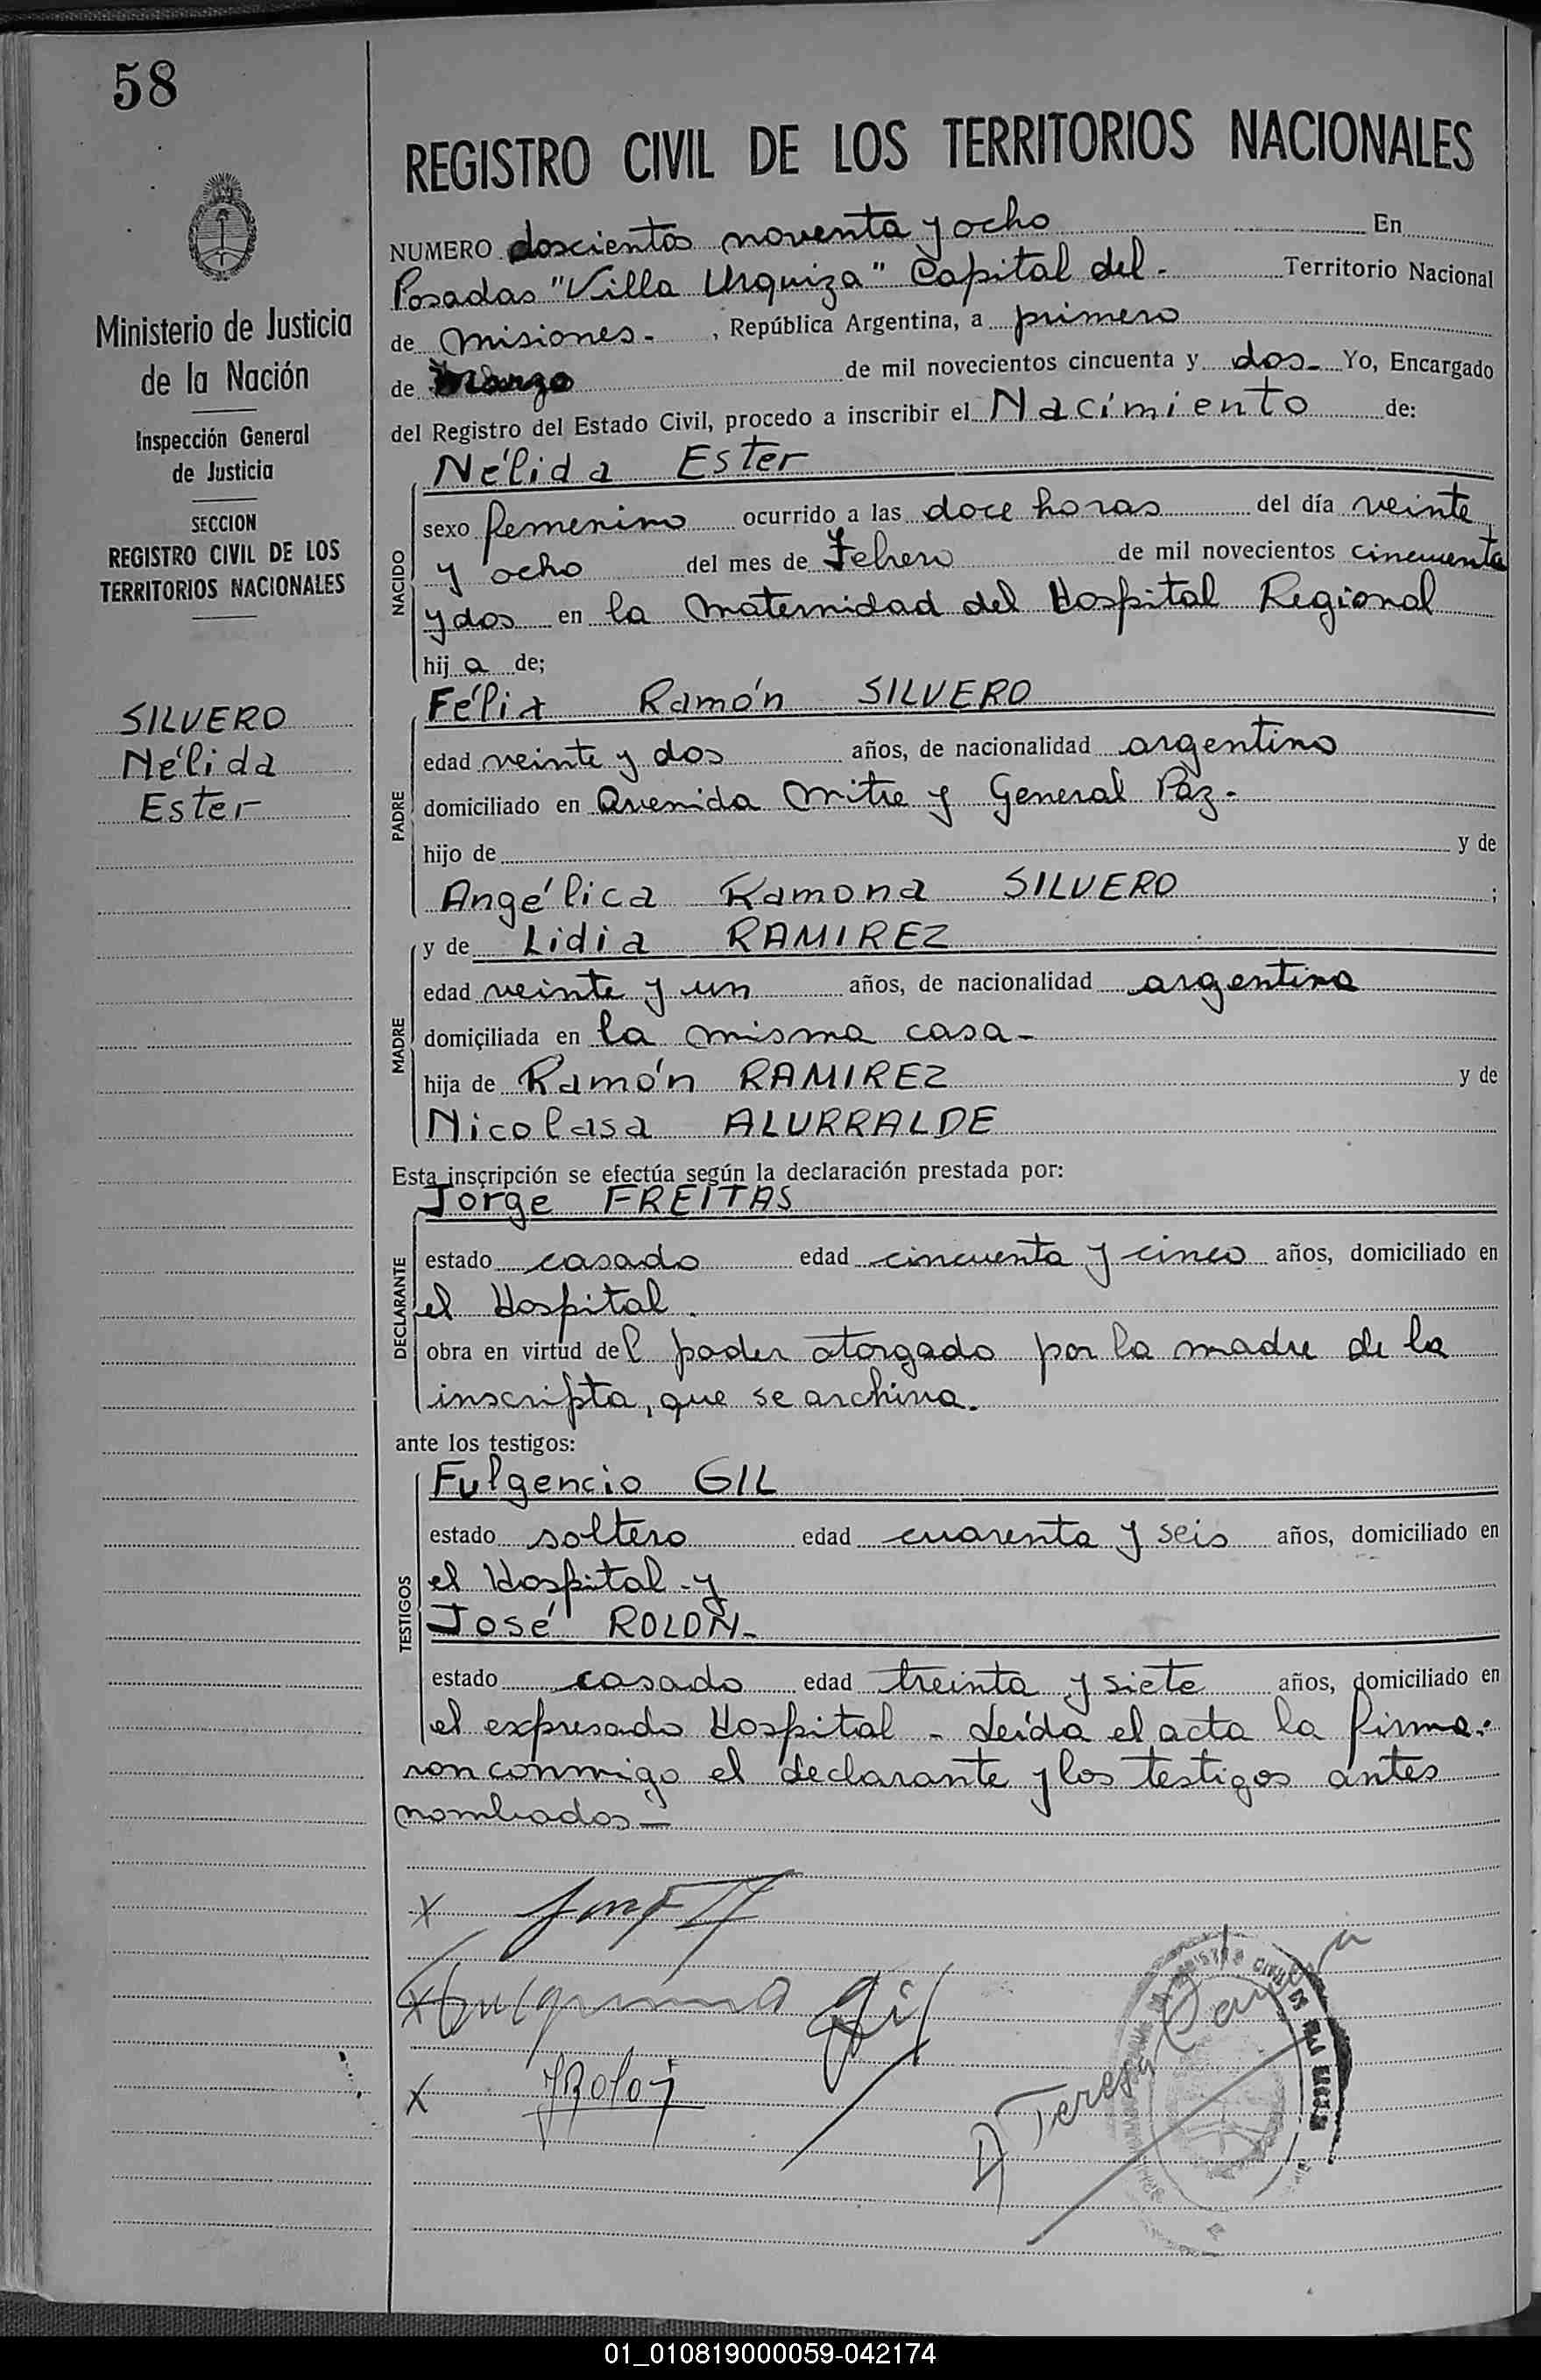 58
REGISTRO CIVIL DE LOS TERRITORIOS NACIONALES
Ministerio de Justicia
de la Nación
Inspección General
de Justicia
SECCION
REGISTRO CIVIL DE LOS
TERRITORIOS NACIONALES
SILVERO
Nélida
Ester
NUMERO doscientos noventa y ocho En
Posadas "Villa Urquiza" Capital del - Territorio Nacional
de Misiones - , República Argentina, a primero
de Marzo de mil novecientos cincuenta y dos - Yo, Encargado
del Registro del Estado Civil, procedo a inscribir el Nacimiento de:
Nélida Ester
NACIDO
sexo femenino ocurrido a las doce horas del día veinte
y ocho del mes de Febrero de mil novecientos cincuenta
y dos en la Maternidad del Hospital Regional
hij a de;
Félix Ramón SILVERO
PADRE
edad veinte y dos años, de nacionalidad argentino
domiciliado en Avenida Mitre y General Paz -
hijo de y de
Angélica Ramona SILVERO ;
y de Lidia RAMIREZ
MADRE
edad veinte y un años, de nacionalidad argentina
domiciliada en la misma casa -
hija de Ramón RAMIREZ y de
Nicolasa ALURRALDE
Esta inscripción se efectúa según la declaración prestada por:
Jorge FREITAS
DECLARANTE
estado casado edad cincuenta y cinco años, domiciliado en
el Hospital.
obra en virtud del poder otorgado por la madre de la
inscripta, que se archiva.
ante los testigos:
Fulgencio GIL
TESTIGOS
estado soltero edad cuarenta y seis años, domiciliado en
el Hospital - y
José ROLON -
estado casado edad treinta y siete años, domiciliado en
el expresado Hospital - Leída el acta la firma-
ron conmigo el declarante y los testigos antes
nombrados -
x
x Fulgencio Gil
x JRolon
Teresa
01_010819000059-042174